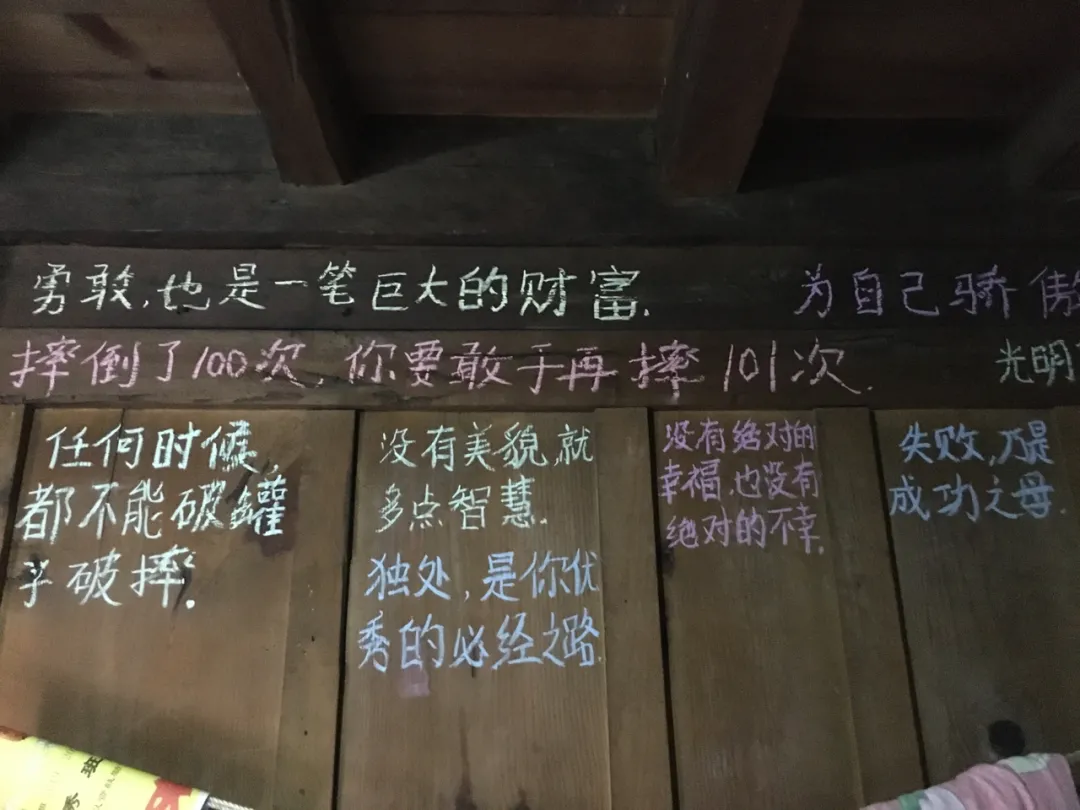 勇敢,也是一笔巨大的财富.
为自己骄傲
摔倒了100次,你要敢于再摔101次.
光明
任何时候,
都不能破罐
乎破摔.
没有美貌,就
多点智慧.
独处,是你优
秀的必经之路.
没有绝对的
幸福,也没有
绝对的不幸.
失败,乃是
成功之母.